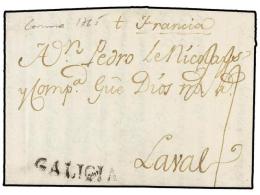 Coruña 1765 t Francia
A Dn. Pedro le Nicolais
y Compa. Gue Dios ms. as.
GALICIA
Laval